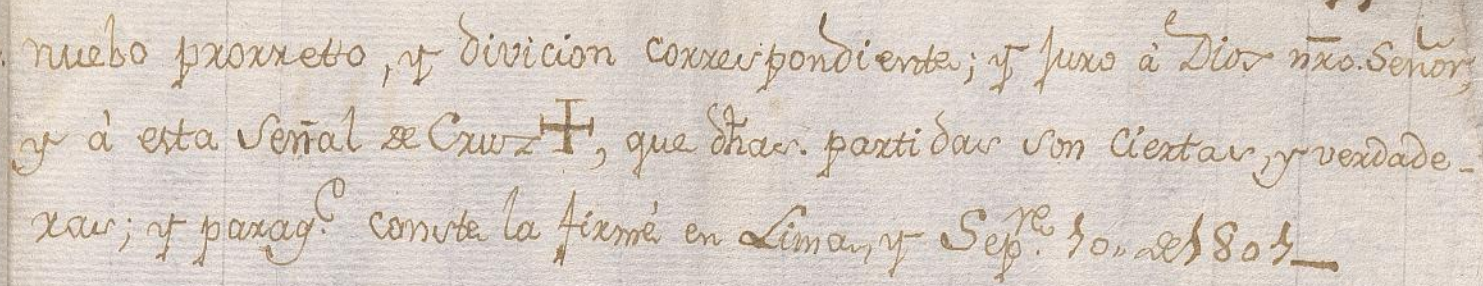 nuebo prorreto, y divicion correspondiente; y juro â Dios nr̃o. Señor,
y â esta señal de Cruz ✝, que dh̃as. partidas son ciertas, y verdade-
ras; y paraq.e conste la firmé en Lima, y Sep.re 10,, de 1801_